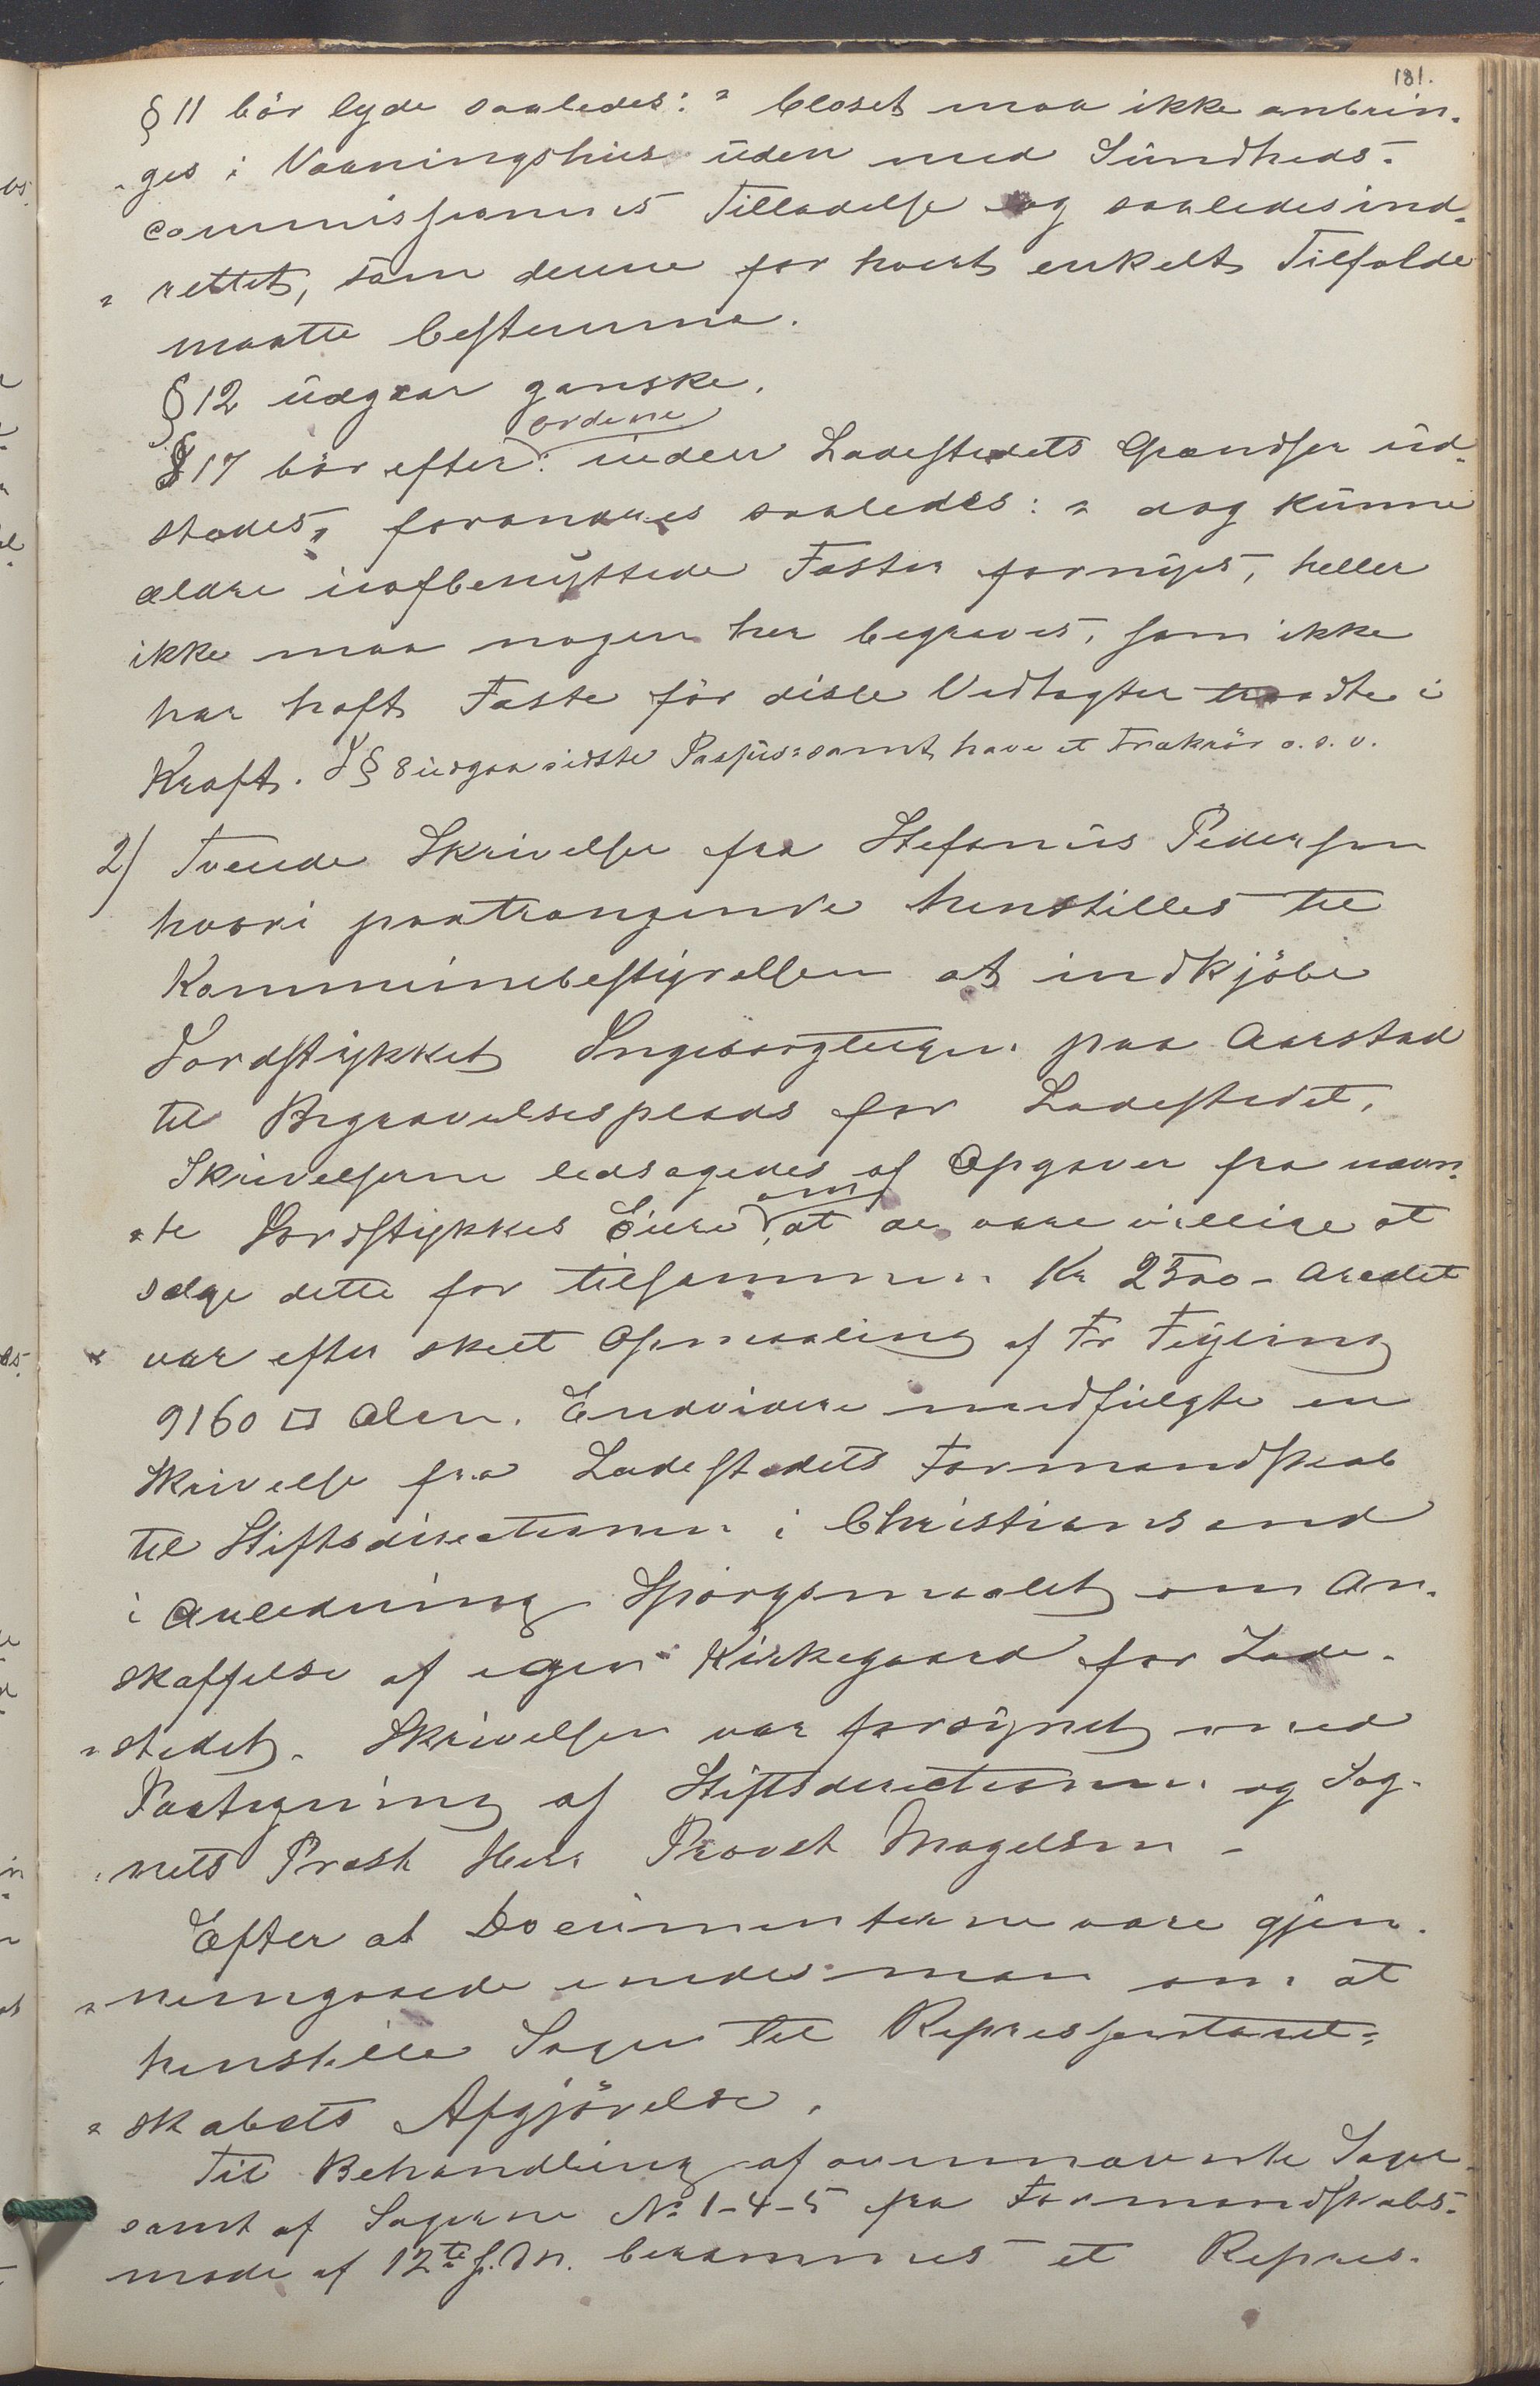 181.
§ 11 bör lyde saaledes: " Closet maa ikke anbrin-
"ges i Vaaningshus uden med Sundheds-
commissionens Tilladelse og saaledes ind-
"rettet, som denne for hvert enkelt Tilfælde
maatte bestemme.
§ 12 udgaar ganske.
ordene
§ 17 bör efter: inden Ladestedets Grændser ud-
stedes, forandres saaledes: " dog kunne
ældre uafbenyttede Fæster fornyes, heller
ikke maa nogen her begraves, som ikke
har haft Fæste för disse Vedtægter traadte i
Kraft. I § 8 udgaar sidste Passus: samt have et Trækrör o.s.v.
2) Tvende Skrivelser fra Stefanus Pedersen
hvori paatrængende henstilles til
Kommunebestyrelsen at indkjöbe
Jordstykket Ingeborgteigen paa Aarstad
til Begravelsesplads for Ladestedet.
Skrivelserne ledsagedes af Opgaver fra nævn-
om
"te Jordstykkes Eiere, at de vare villige at
sælge dette for tilsammen Kr 2500 - Arealet
" var efter skeet Opmaaling af Fr Feyling
9160 □ Alen. Endvidere medfulgte en
Skrivelse fra Ladestedets Formandskab
til Stiftsdirectionen i Christiansand
i Anledning Spörgsmaalet om An-
skaffelse af egen Kirkegaard for Lade-
"stedet. Skrivelsen var forsynet med
Paategning af Stiftsdirectionen og Sog-
"nets Præst Herr Provst Magelsen -
Efter at Documenterne vare gjen-
"nemgaaede enedes man om at
henstille Sagen til Repræsentant-
"skabets Afgjörelse.
Til Behandling af ovennævnte Sager
samt af Sagerne No 1-4-5 fra Formandskabs-
möde af 12te f. M. berammes et Repræs-